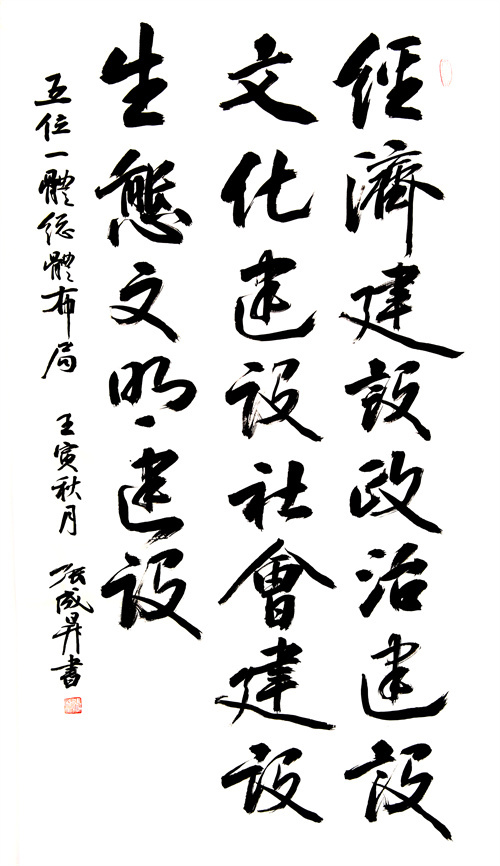 經濟建設政治建設
文化建设社會建设
生態文明建设
五位一體總體布局 壬寅秋月 張成昇書